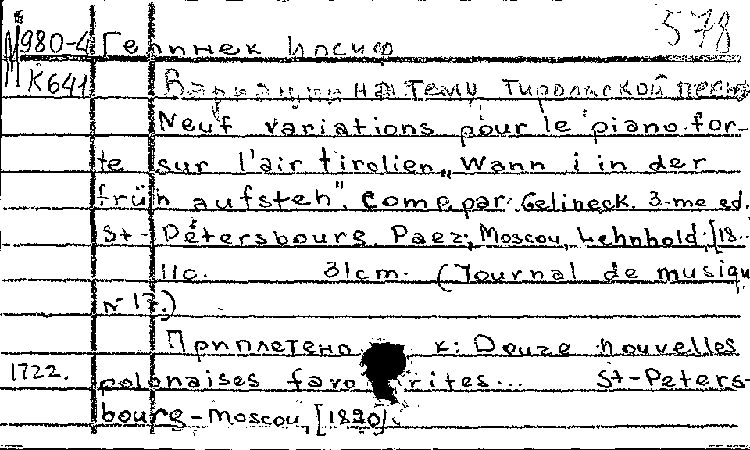 578
М980-4 Гелинек Иосиф
К641 Вариации на тему тирольской песни
Neuf variations pour le piano-for-
te sur l'air tirolien „Wann i in der
früh aufsteh". Come par. Gelineck. 3-me ed.
St-Pétersbourg, Paez; Moscou, Lehnhold, [18..
11с. 31cm. (Journal de musiqu
N 17.)
Приплетено к: Douze nouvelles
1722. polonaises favorites... St-Peters-
bourg-Moscou, [1820].